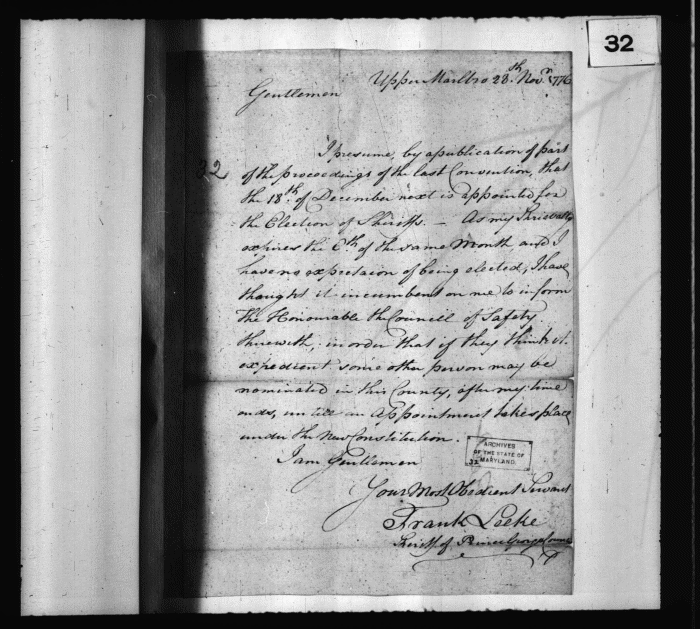 32
Upper Marlbro 28th Novr. 1776
Gentlemen
32
I presume, by a publication of part
of the proceedings of the last Convention, that
the 18th. of December next is appointed for
the Election of Sheriffs. - As my Shrievalty
expires the 6th of the same Month, and I
have no expectaion of being elected, I have
thought it incumbent on me to inform
the Honourable the Council of Safety
therewith, in order that if they think it
expedient some other person may be
nominated in this County, after my time
ends, untill an appointment takes place
under the New Constitution.
I am Gentlemen
Your Most Obedient Servant
Frank Leeke
Sheriff of Prince Georges County
ARCHIVES
OF THE STATE OF
MARYLAND